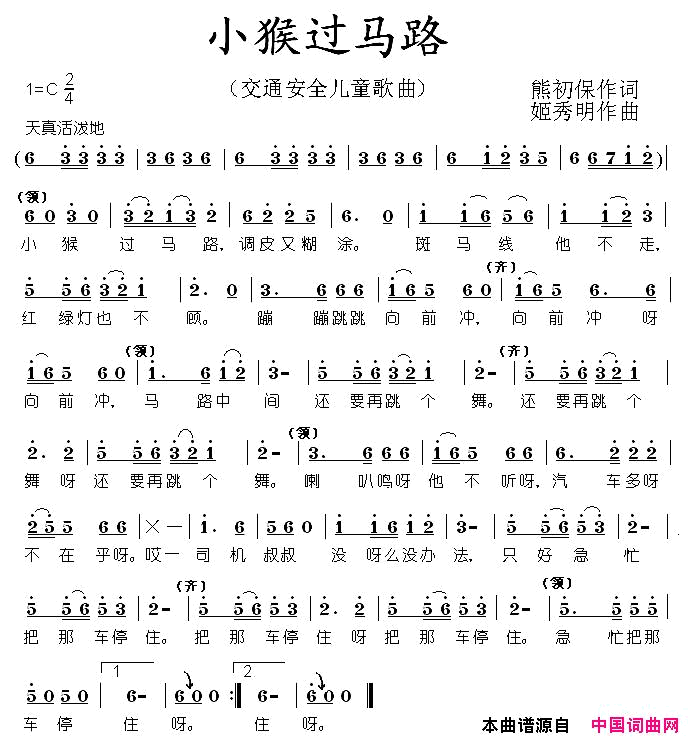 小猴过马路
1=C 2/4
（交通安全儿童歌曲）
熊初保作词
姬秀明作曲
天真活泼地
(6 3 3 3 3 | 3 6 3 6 | 6 3 3 3 3 | 3 6 3 6 | 6 1 2 3 5 | 6 6 7 1 2)
(领)
6 0 3 0 | 3 2 1 3 2 | 6 2 2 2 | 6. 0 | 1 1 6 5 6 | 1 2 3
小 猴 过 马 路，调皮又糊 涂。 斑 马 线 他 不 走，
(齐)
5 5 6 3 2 1 | 2. 0 | 3. 6 6 6 | 1 6 5 6 0 | 1 6 5 6. 6
红 绿灯也 不 顾。 蹦 蹦跳跳 向 前 冲， 向 前 冲 呀
(领) (齐)
1 6 5 6 0 | 1. 6 1 2 | 3- | 5 5 6 3 2 1 | 2- | 5 5 6 3 2 1
向 前 冲， 马 路中 间 还 要再跳 个 舞。还 要再跳 个
(领)
2. 2 | 5 5 5 6 3 2 1 | 2- | 3. 6 6 6 | 1 6 5 6 6 | 6. 2 2 2
舞 呀 还 要再跳 个 舞。喇 叭鸣呀 他 不 听呀，汽 车多呀
2 5 5 6 6 | X – | 1. 6 5 5 | 1 1 6 1 2 | 3- | 5 5 6 5 3
不 在 乎呀。哎一 司 机 叔叔 没 呀么没办 法，只 好急 忙
(齐) (领)
5 5 6 5 3 | 2- | 5 5 6 5 3 | 2. 2 | 5 5 6 5 3 | 2- | 5. 5 5 5
把 那 车停 住。把 那 车停 住 呀 把 那 车停 住。急 忙把那
1 2
5 0 5 0 | 6- | 6 0 0 :‖ 6- | 6 0 0 ‖
车 停 住 呀。 住 呀。
本曲谱源自 中国词曲网